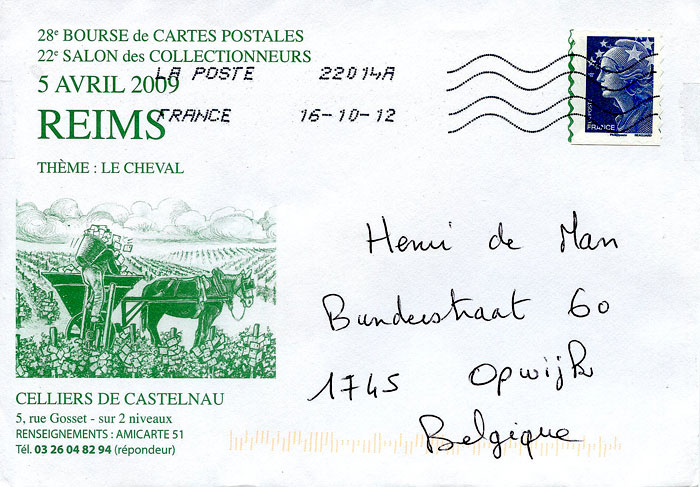 28e BOURSE de CARTES POSTALES
22e SALON des COLLECTIONNEURS
5 AVRIL 2009
REIMS
THÈME : LE CHEVAL
LA POSTE 22014A
FRANCE 16-10-12
LA POSTE
FRANCE
Henri de Man
Bunderstraat 60
1745 Opwijk
Belgique
CELLIERS DE CASTELNAU
5, rue Gosset - sur 2 niveaux
RENSEIGNEMENTS : AMICARTE 51
Tél. 03 26 04 82 94 (répondeur)